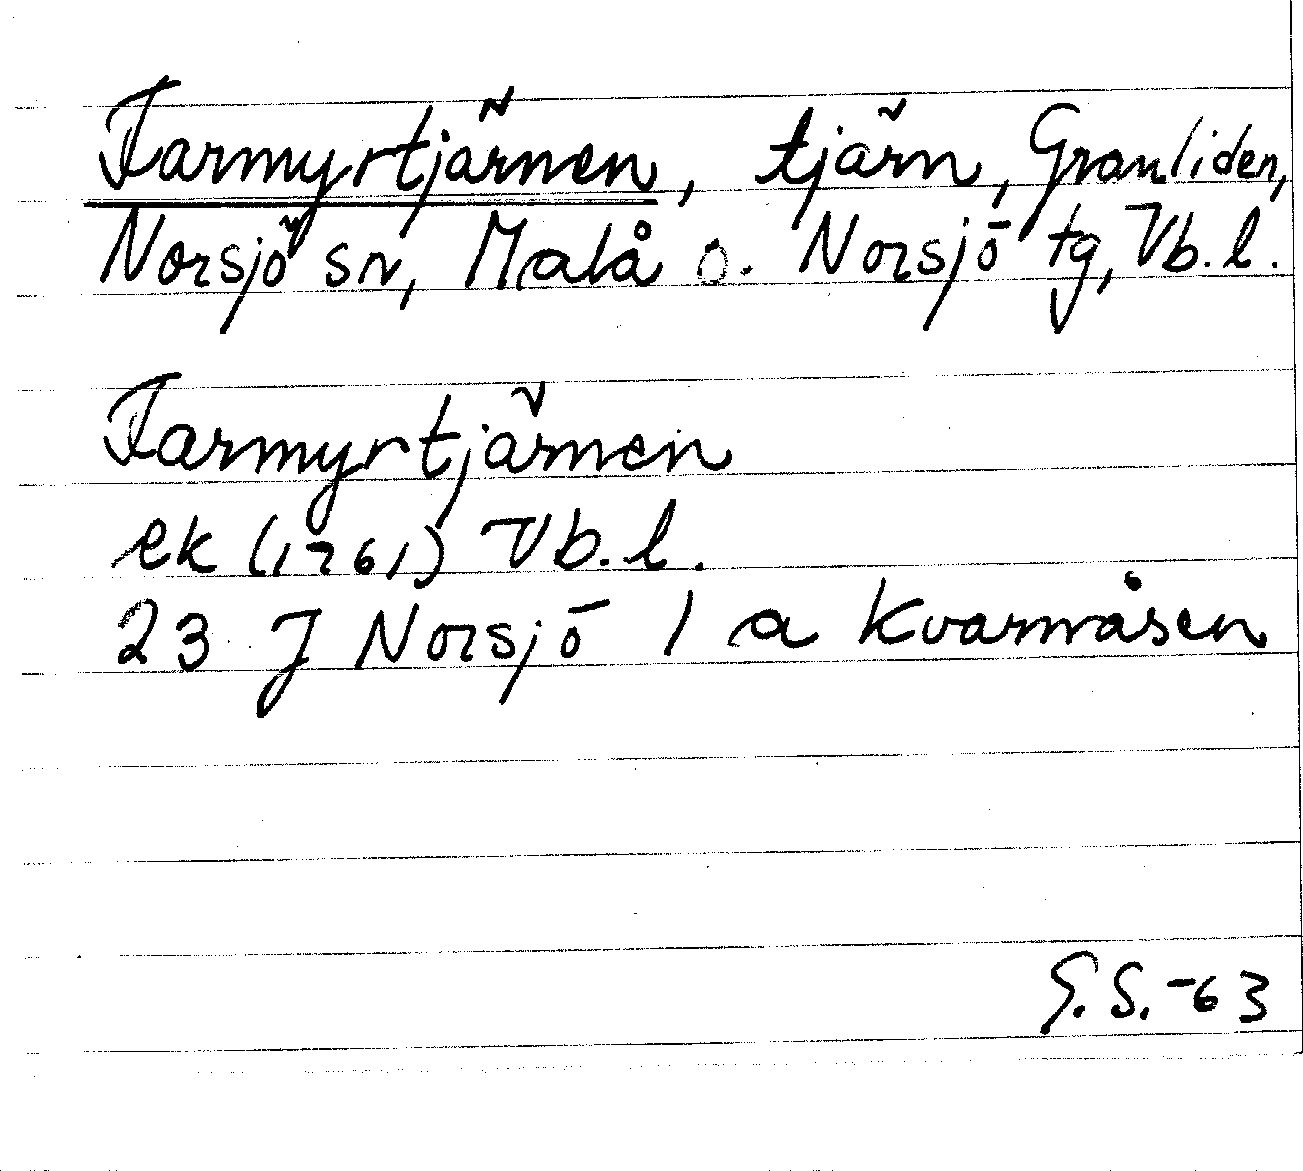 Farmyrtjärnen, tjärn, Granliden,
Norsjö sn, Malå o. Norsjö tg, Vb. l.
Farmyrtjärnen
ek (1961) Vb. l.
23 J Norsjö 1 a Kvarnåsen
G. S. -63